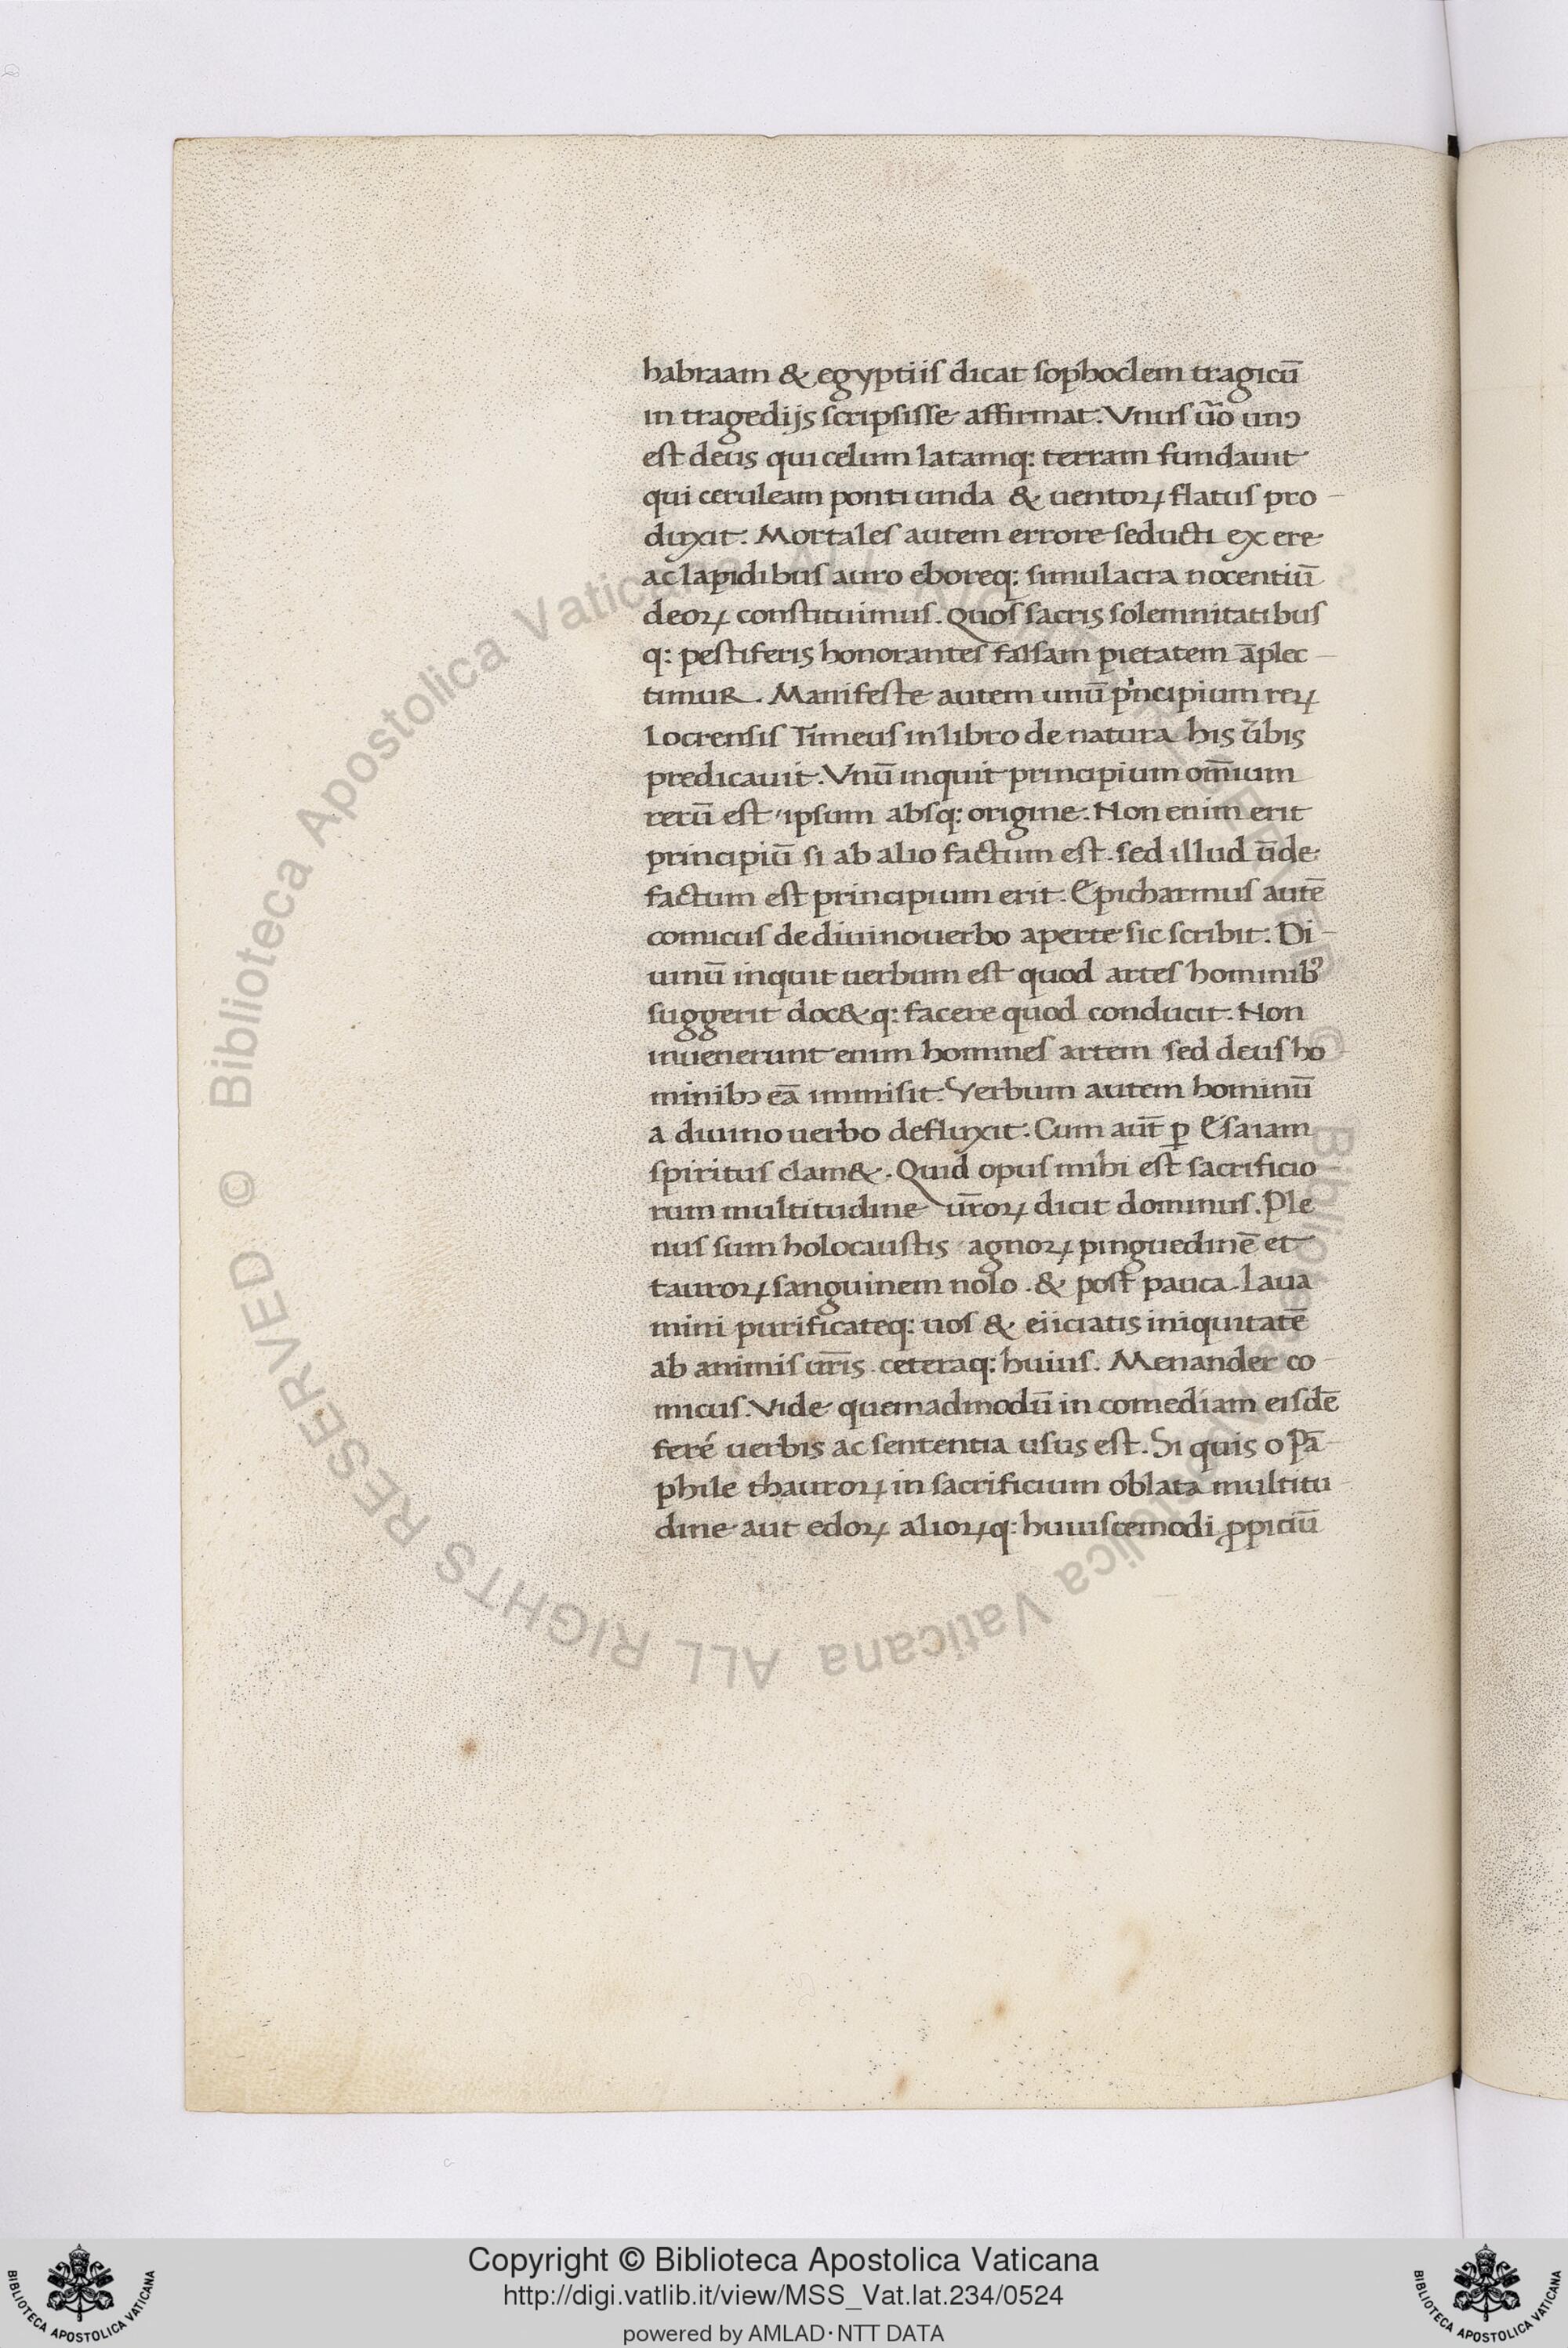 habraam & egyptiis dicat sophoclem tragicū
in tragedijs scripsisse affirmat. Vnus ūo unꝯ
est deus qui celum latamq: terram fundauit
qui ceruleam ponti unda & uentoꝝ flatus pro-
duxit. Mortales autem errore seducti ex ere
ac lapidibus auro eboreq: simulacra nocentiū
deoꝝ constituimus. Quos sacris solemnitatibus
q: pestiferis honorantes falsam pietatem āplec-
timur. Manifeste autem unū pͥncipium reꝝ
Locrensis Timeus in libro de natura his ūbis
predicauit. Vnū inquit principium om̄ium
rerū est ipsum absq: origine. Non enim erit
principiū si ab alio factum est. sed illud ūde
factum est principium erit. Epicharmus autē
comicus de diuino uerbo aperte sic scribit: Di-
uinū inquit uerbum est quod artes hominibꝰ
suggerit doc&q: facere quod conducit. Non
inuenerunt enim homines artem sed deus ho
minibꝰ eā immisit. Verbum autem hominū
a diuino uerbo defluxit. Cum aūt ꝑ Esaiam
spiritus clam&. Quid opus mihi est sacrificio
rum multitudine ūroꝝ dicit dominus. Ple
nus sum holocaustis agnoꝝ pinguedinē et
tauroꝝ sanguinem nolo. & post pauca. Laua
mini purificateq: uos & eiiciatis iniquitatē
ab animis ūris ceteraq: huius. Menander co
micus. Vide quemadmodū in comediam eisdē
feré uerbis ac sententia usus est. Si quis o Pā-
phile thauroꝝ in sacrificium oblata multitu
dine aut edoꝝ alioꝝq: huiuscemodi ꝓpiciū
© Biblioteca Apostolica Vaticana ALL RIGHTS RESERVED © Biblioteca Apostolica Vaticana ALL RIGHTS RESERVED
Copyright © Biblioteca Apostolica Vaticana
http://digi.vatlib.it/view/MSS_Vat.lat.234/0524
powered by AMLAD·NTT DATA
BIBLIOTECA APOSTOLICA VATICANA
BIBLIOTECA APOSTOLICA VATICANA